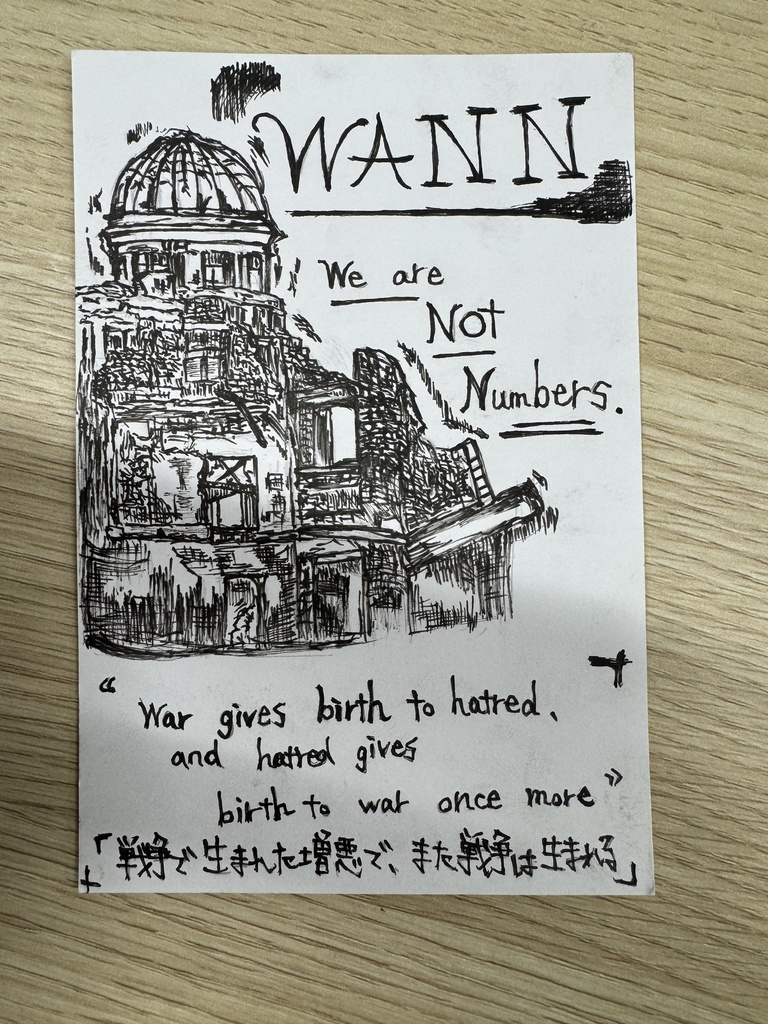 WANN
We are
Not
Numbers.
“War gives birth to hatred,
and hatred gives
birth to war once more”
「戦争で生まれた増悪で、また戦争は生まれる」